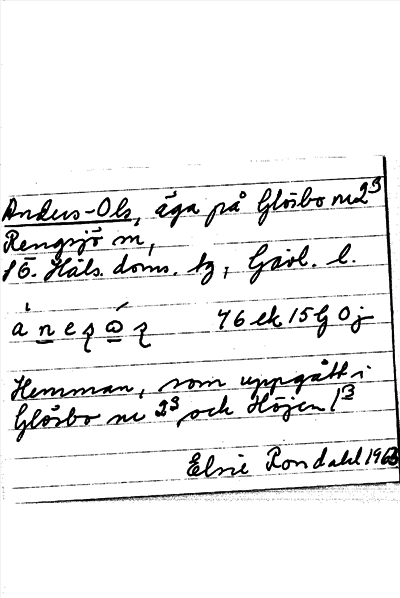 Anders-Ols, äga på Glösbo nr 2³
Rengsjö sn,
S. Häls. doms. tg, Gävl. l.
76 ek 15 G 0 j
Hemman, som uppgått i
Glösbo nr 2³ och Höjen 1³
Elsie Rondahl 1963